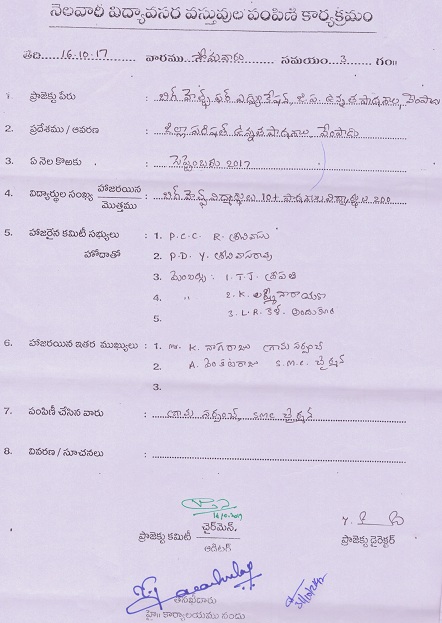 నెలవారీ విద్యావసర వస్తువుల పంపిణీ కార్యక్రమం
తేది 16-10-17 వారము సోమవారం సమయం 3 గం॥
1. ప్రాజెక్టు పేరు : బిగ్ హెల్ప్ ఫర్ ఎడ్యుకేషన్, జి.ప. ఉన్నత పాఠశాల, వెంపాడు
2. ప్రదేశము / ఆవరణ : జిల్లా పరిషత్ ఉన్నత పాఠశాల, వేంపాడు
3. ఏ నెల కొఱకు : సెప్టెంబరు 2017
4. విద్యార్థుల సంఖ్య హాజరయిన : బిగ్ హెల్ప్ విద్యార్థులు 10 + పాఠశాల విద్యార్థులు 200
మొత్తము
5. హాజరైన కమిటీ సభ్యులు : 1. P.C.C R. శ్రీనివాసు
హోదాతో 2. P.D. Y. శ్రీనివాసరావు
3. మెంబర్లు : 1. T.J. శ్రీపతి
4. " 2. K. లక్ష్మీనారాయణ
5. 3. L.R. కె.
6. హాజరయిన ఇతర ముఖ్యులు : 1. Mr. K. నాగరాజు గ్రామ సర్పంచ్
2. A. వెంకటరాజు S.M.C. చైర్మన్
3.
7. పంపిణీ చేసిన వారు : గ్రామ సర్పంచ్, SMC చైర్మన్
8. వివరణ / సూచనలు :
ప్రాజెక్టు కమిటీ చైర్‌మెన్. ప్రాజెక్టు డైరెక్టర్
ఆడిటర్
హై॥ కార్యాలయము నందు